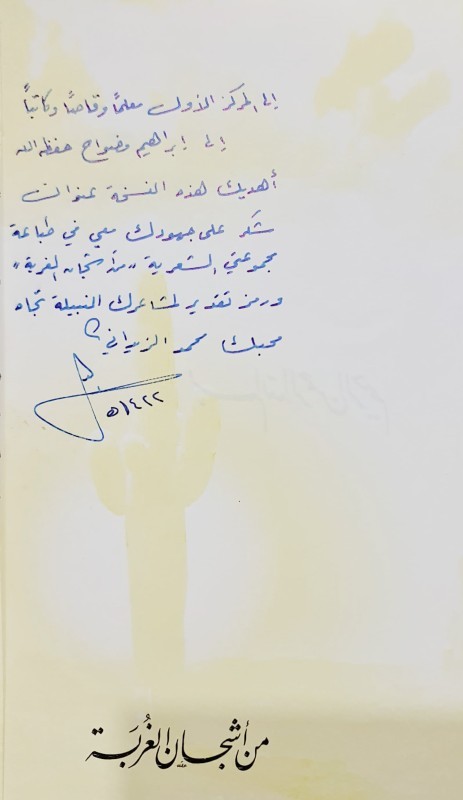 إلى المركز الأول معلمًا وقاصًا وكاتبًا
إلى إبراهيم مضواح حفظه الله
أهديك هذه النسخة عنوان
شكر على جهودك معي في طباعة
مجموعتي الشعرية "من أشجان الغربة"
ورمز تقدير لمشاعرك النبيلة تجاه
محبك محمد الزيداني
١٤٢٢هـ
من أشجان الغُربَة